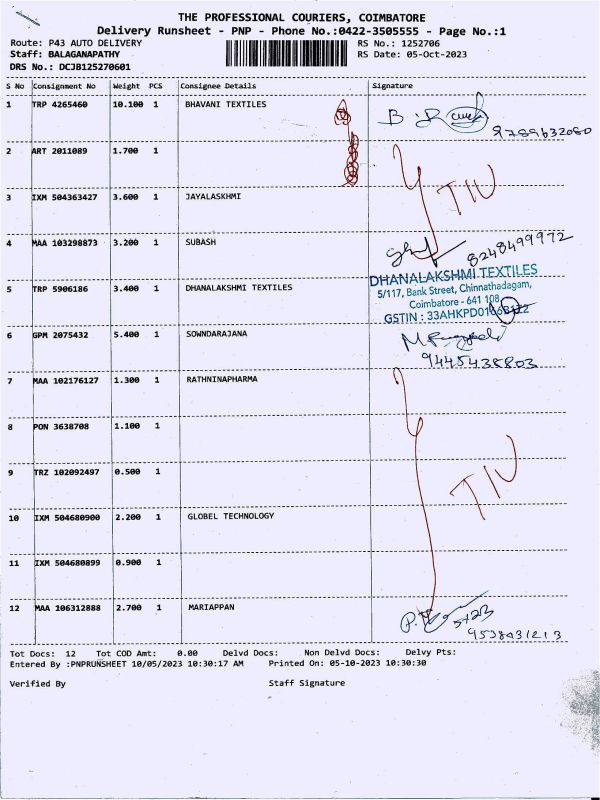 THE PROFESSIONAL COURIERS, COIMBATORE
Delivery Runsheet - PNP - Phone No.:0422-3505555 - Page No.:1
Route: P43 AUTO DELIVERY RS No.: 1252706
Staff: BALAGANAPATHY RS Date: 05-Oct-2023
DRS No.: DCJB125270601
S No Consignment No Weight PCS Consignee Details Signature
1 TRP 4265460 10.100 1 BHAVANI TEXTILES
9789632080
2 ART 2011089 1.700 1
TIU
3 IXM 504363427 3.600 1 JAYALASKHMI
4 MAA 103298873 3.200 1 SUBASH 8248499972
5 TRP 5906186 3.400 1 DHANALAKSHMI TEXTILES
DHANALAKSHMI TEXTILES
5/117, Bank Street, Chinnathadagam,
Coimbatore - 641 108.
GSTIN : 33AHKPD01
6 GPM 2075432 5.400 1 SOWNDARAJANA
9445438803
7 MAA 102176127 1.300 1 RATHNINAPHARMA
8 PON 3638708 1.100 1
9 TRZ 102092497 0.500 1
TIU
10 IXM 504680900 2.200 1 GLOBEL TECHNOLOGY
11 IXM 504680899 0.900 1
12 MAA 106312888 2.700 1 MARIAPPAN
9538431213
Tot Docs: 12 Tot COD Amt: 0.00 Delvd Docs: Non Delvd Docs: Delvy Pts:
Entered By :PNPRUNSHEET 10/05/2023 10:30:17 AM Printed On: 05-10-2023 10:30:30
Verified By Staff Signature